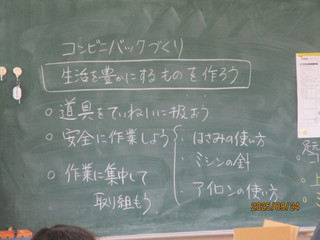 コンビニバックづくり
生活を豊かにするものを作ろう
○道具をていねいに扱おう
○安全に作業しよう
・はさみの使い方
・ミシンの針
・アイロンの使い方
○作業に集中して
取り組もう
2025/09/24